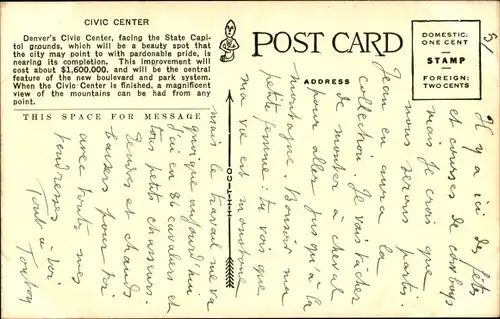 CIVIC CENTER
Denver's Civic Center, facing the State Capi-
tol grounds, which will be a beauty spot that
the city may point to with pardonable pride, is
nearing its completion. This improvement will
cost about $1,600,000, and will be the central
feature of the new boulevard and park system.
When the Civic Center is finished, a magnificent
view of the mountains can be had from any
point.
THIS SPACE FOR MESSAGE
POST CARD
ADDRESS
DOMESTIC:
ONE CENT
STAMP
FOREIGN:
TWO CENTS
H-H-T-CO
3/
Il y a ici des fêtes
et courses de cowboys
mais je crois que
nous serons partis.
Jean en aura la
collection. Je vais tâcher
de monter à cheval
pour aller jusqu'à la
montagne. Bonsoir ma
petite femme : tu vois que
ma vie est monotone
mais le travail me va
quoique aujourd'hui
j'ai eu 86 cavaliers et
tous petits chasseurs.
Tendres et chauds
baisers pour toi
avec toutes mes
tendresses
Tout à toi